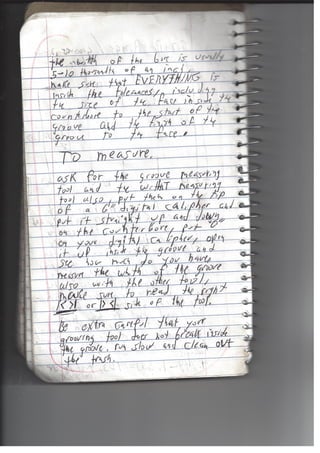 the width of the bore is usually
5-10 thousands of an inch.
make sure that EVERYTHING is
inside the tolerances, including
the size of the face inside the
counterbore to the start of the
groove and the depth of the
groove to the face.
TO measure,
ask for the groove measuring
tool and the width measuring
tool also, put them on the tip
of a 6" digital caliper and
put it straight up and down
on the counterbore, put "0"
on your digital caliper, open
it up inside the groove and
see how much do you have,
measure the width of the groove
also with the other tool,
make sure to read the right
side of the tool.
Be extra careful that your
grooving tool does not break inside
the groove. run slow and clean out
the trash.